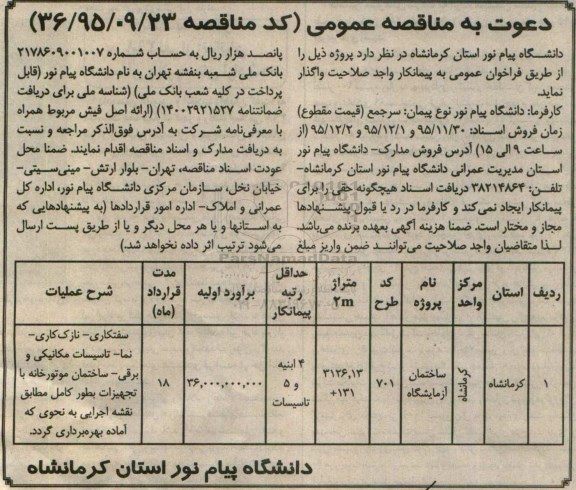 دعوت به مناقصه عمومی (کد مناقصه ۳۶/۹۵/۰۹/۲۳)
دانشگاه پیام نور استان کرمانشاه در نظر دارد پروژه ذیل را
از طریق فراخوان عمومی به پیمانکار واجد صلاحیت واگذار
نماید.
کارفرما: دانشگاه پیام نور نوع پیمان: سرجمع (قیمت مقطوع)
زمان فروش اسناد: ۹۵/۱۱/۳۰ و ۹۵/۱۲/۱ و ۹۵/۱۲/۲ (از
ساعت ۹ الی ۱۵) آدرس فروش مدارک- دانشگاه پیام نور
استان مدیریت عمرانی دانشگاه پیام نور استان کرمانشاه-
تلفن: ۳۸۲۱۴۸۶۴ دریافت اسناد هیچگونه حقی را برای
پیمانکار ایجاد نمی‌کند و کارفرما در رد یا قبول پیشنهادها
مجاز و مختار است. ضمنا هزینه آگهی بعهده برنده می‌باشد.
لذا متقاضیان واجد صلاحیت می‌توانند ضمن واریز مبلغ
پانصد هزار ریال به حساب شماره ۲۱۷۸۶۰۹۰۰۱۰۰۷
بانک ملی شعبه بنفشه تهران به نام دانشگاه پیام نور (قابل
پرداخت در کلیه شعب بانک ملی) (شناسه ملی برای دریافت
ضمانتنامه ۱۴۰۰۲۹۲۱۵۲۷) (ارائه اصل فیش مربوط همراه
با معرفی‌نامه شرکت به آدرس فوق‌الذکر مراجعه و نسبت
به دریافت مدارک و اسناد مناقصه اقدام نمایند. ضمنا محل
عودت اسناد مناقصه، تهران- بلوار ارتش- مینی‌سیتی-
خیابان نخل، سازمان مرکزی دانشگاه پیام نور، اداره کل
عمرانی و املاک- اداره امور قراردادها (به پیشنهادهایی که
به استانها و یا هر محل دیگر و یا از طریق پست ارسال
می‌شود ترتیب اثر داده نخواهد شد.)
ردیف | استان | مرکز واحد | نام پروژه | کد طرح | متراژ ۲m | حداقل رتبه پیمانکار | برآورد اولیه | مدت قرارداد (ماه) | شرح عملیات
۱ | کرمانشاه | کرمانشاه | ساختمان آزمایشگاه | ۷۰۱ | ۳۱۲۶,۱۳ +۱۳۱ | ۴ ابنیه و ۵ تاسیسات | ۳۶,۰۰۰,۰۰۰,۰۰۰ | ۱۸ | سفتکاری- نازک‌کاری- نما- تاسیسات مکانیکی و برقی- ساختمان موتورخانه با تجهیزات بطور کامل مطابق نقشه اجرایی به نحوی که آماده بهره‌برداری گردد.
دانشگاه پیام نور استان کرمانشاه
ParsNamadData